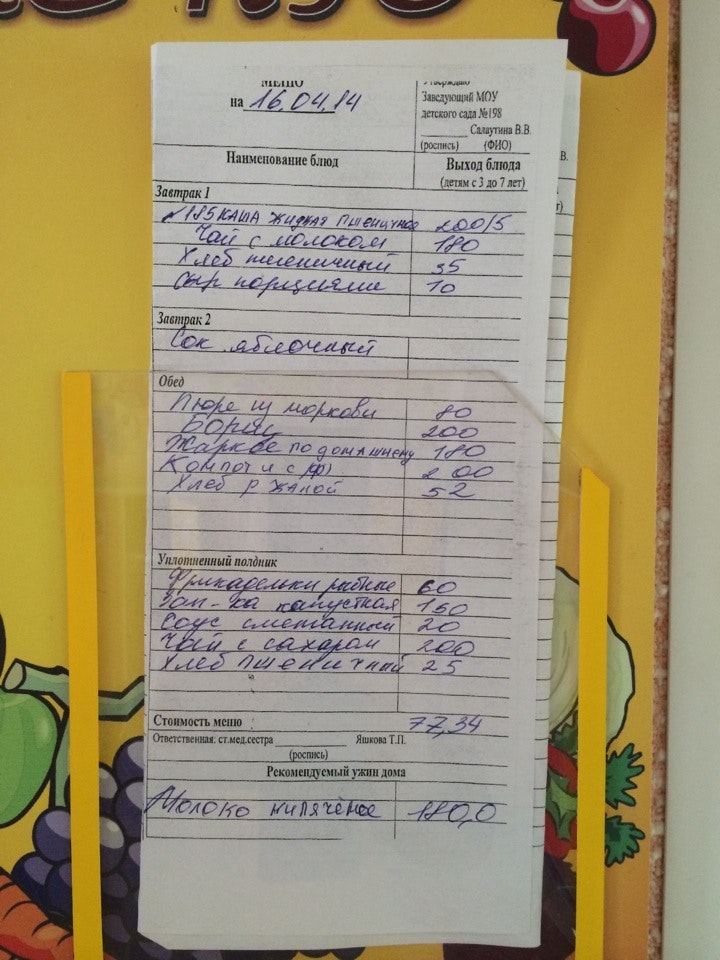 МЕНЮ
на 16.04.14
Утверждаю
Заведующий МОУ
детского сада №198
Салаутина В.В.
(роспись) (ФИО)
Наименование блюд
Выход блюда
(детям с 3 до 7 лет)
Завтрак 1
185 каша жидкая пшеничное 200/5
Чай с молоком 180
Хлеб пшеничный 35
Сыр порциями 10
Завтрак 2
Сок яблочный
Обед
Пюре из моркови 80
Борщ 200
Жаркое по домашнему 180
Компот и с/ф 200
Хлеб ржаной 52
Уплотненный полдник
Фрикадельки рыбные 60
Зап-ка капустная 160
Соус сметанный 20
Чай с сахаром 200
Хлеб пшеничный 25
Стоимость меню 77,34
Ответственная: ст.мед.сестра Яшкова Т.П.
(роспись)
Рекомендуемый ужин дома
Молоко кипячёное 180,0
В.